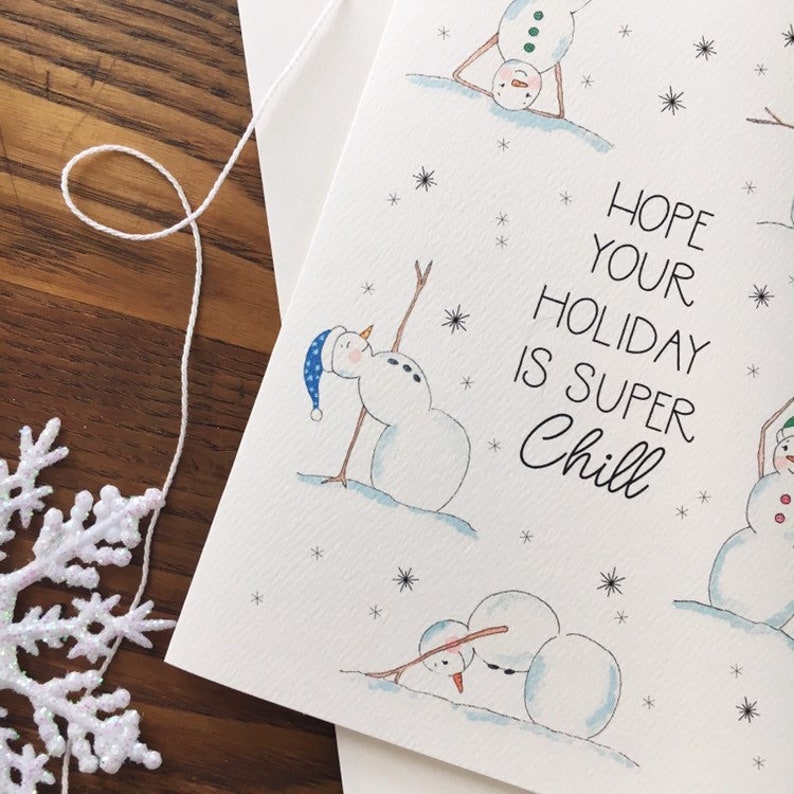 HOPE
YOUR
HOLIDAY
IS SUPER
Chill